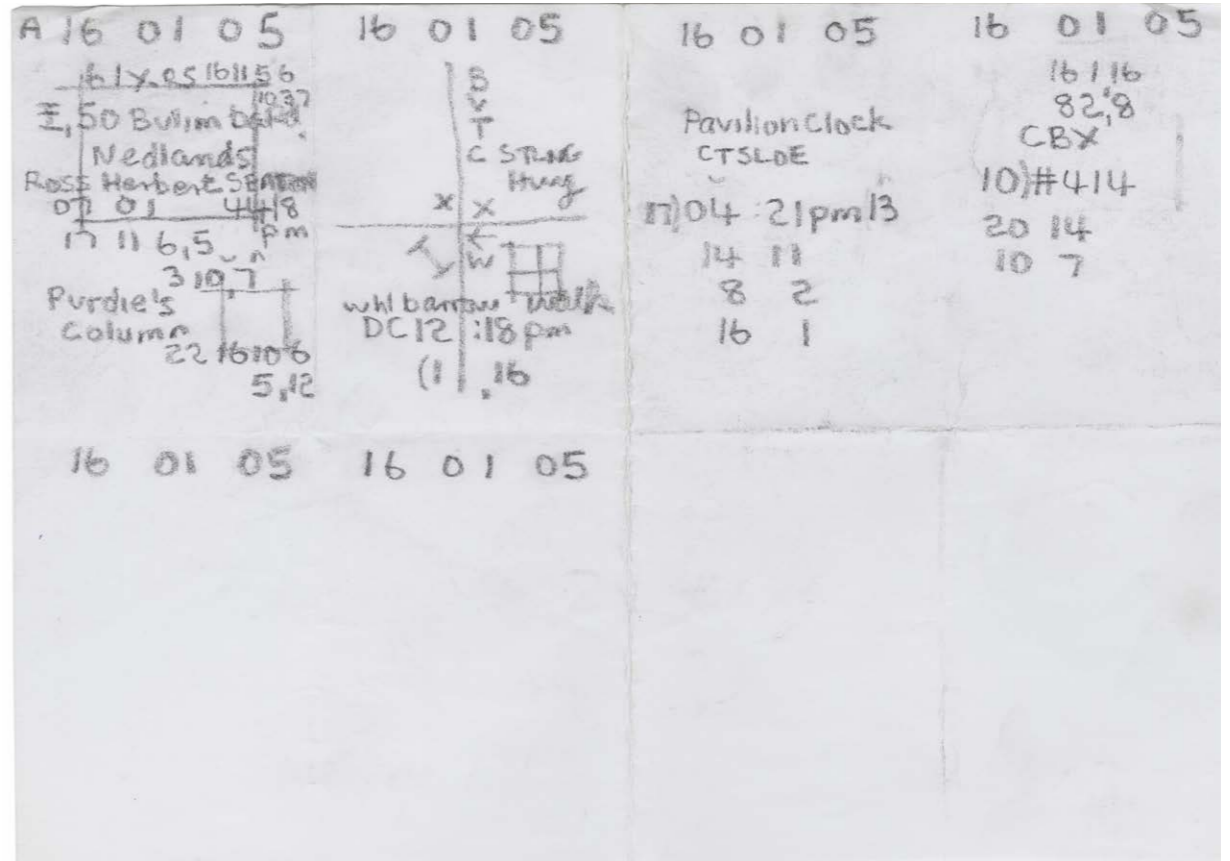 A 16 01 05
161156
1037
50 Bulim
Nedlands
Ross Herbert SEATON
07 01 44 18
17 11 6,5 pm
3 10, 7
Purdie's
Column
22 16 10 6
5,12
16 01 05
B
T
C STRNG
Hung
X X
W
whlbarrow walk
DC12 :18pm
(1 , 16
16 01 05
Pavilion Clock
CTSLDE
17)04 :21pm 13
14 11
8 2
16 1
16 01 05
16 1 16
82,8
CBX
10)#414
20 14
10 7
16 01 05
16 01 05